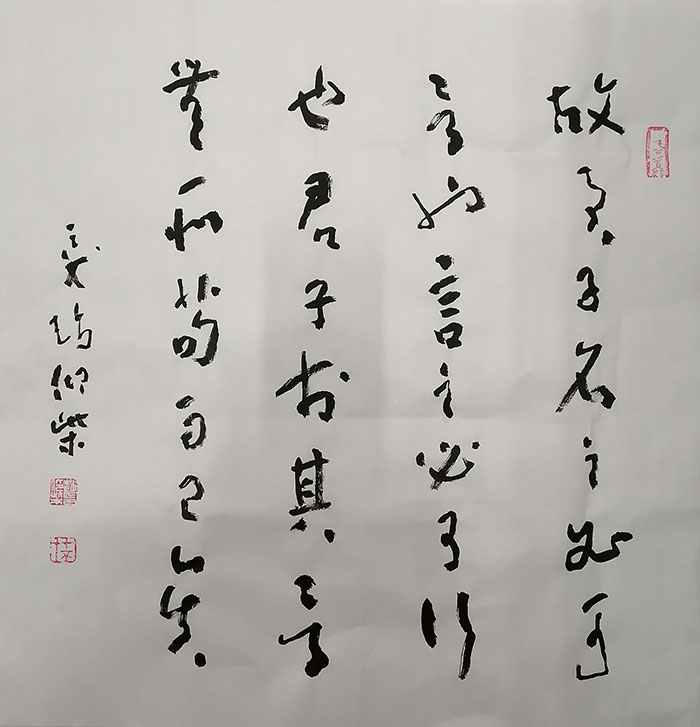 故君子名之必可
言也言之必可行
也君子於其言
無所苟而已矣
仰柴